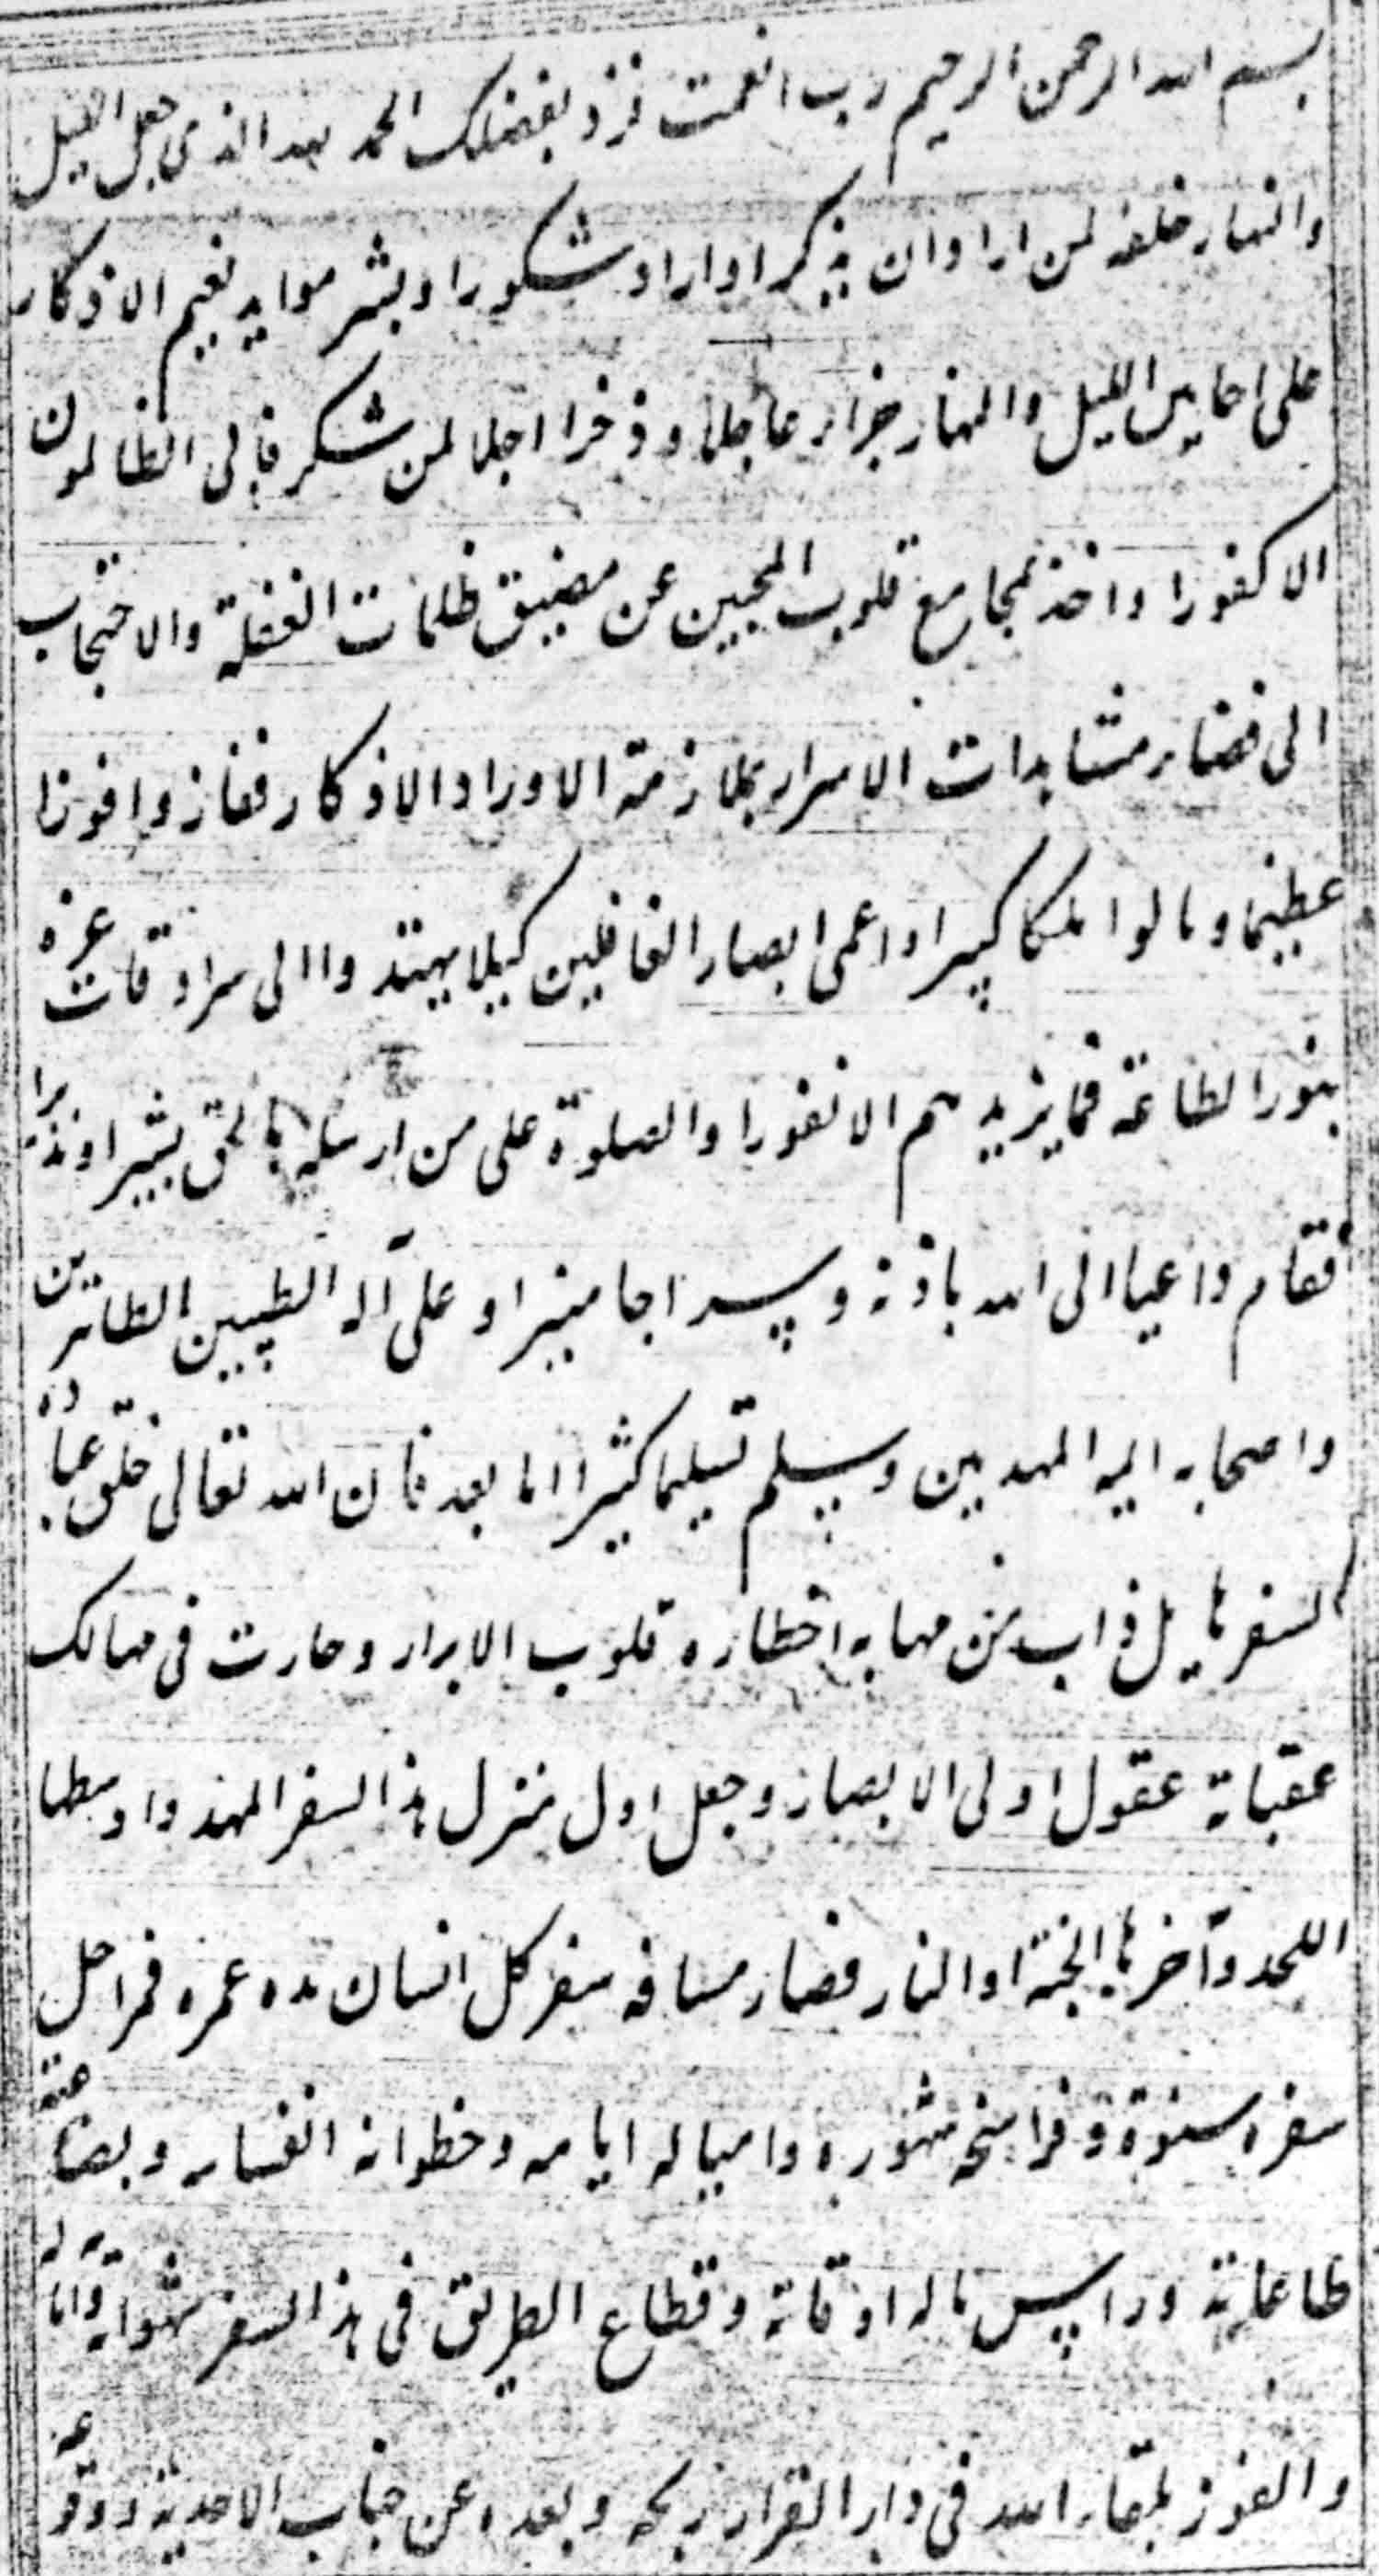 بسم الله الرحمن الرحیم رب انعمت فزد بفضلک الحمد لله الذی جعل اللیل
والنهار خلفه لمن اراد ان یذکر او اراد شکورا و بشر مواید نعیم الاذکار
علی احایین اللیل والنهار جزاء عاجلا و ذخرا اجلا لمن شکر فابی الظالمون
الا کفورا واخذ بمجامع قلوب المحبین عن مضیق ظلمات الغفلة والاحتجاب
الی فضاء مشاهدات الاسرار بملازمة الاوراد الاذکار ففازوا فوزا
عظیما و نالوا ملکا کبیرا و اعمی ابصار الغافلین کیلا یهتدوا الی سرادقات عزه
بنور الطاعة فما یزیدهم الا نفورا والصلوة علی من ارسله بالحق بشیرا و نذیرا
فقام داعیا الی الله باذنه و سراجا منیرا و علی آله الطیبین الطاهرین
واصحابه المهدیین وسلم تسلیما کثیرا اما بعد فان الله تعالی خلق عباده
لسفر هایل ذاب من مهابه اخطاره قلوب الابرار و حارت فی مهالک
عقباته عقول اولی الابصار و جعل اول منزل هذا السفر المهد و اوسطها
اللحد و آخرها الجنة او النار فصار مسافه سفر کل انسان مده عمره فمراحل
سفره سنوة و فراسخه شهوره و امیاله ایامه و خطواته انفسامه و بضاعته
طاعاته و راس ماله اوقاته و قطاع الطریق فی هذا السفر شهواته و اماله
والفوز بلقاء الله فی دار القرار ربحه و بعده عن جناب الاحدیة و وقوعه